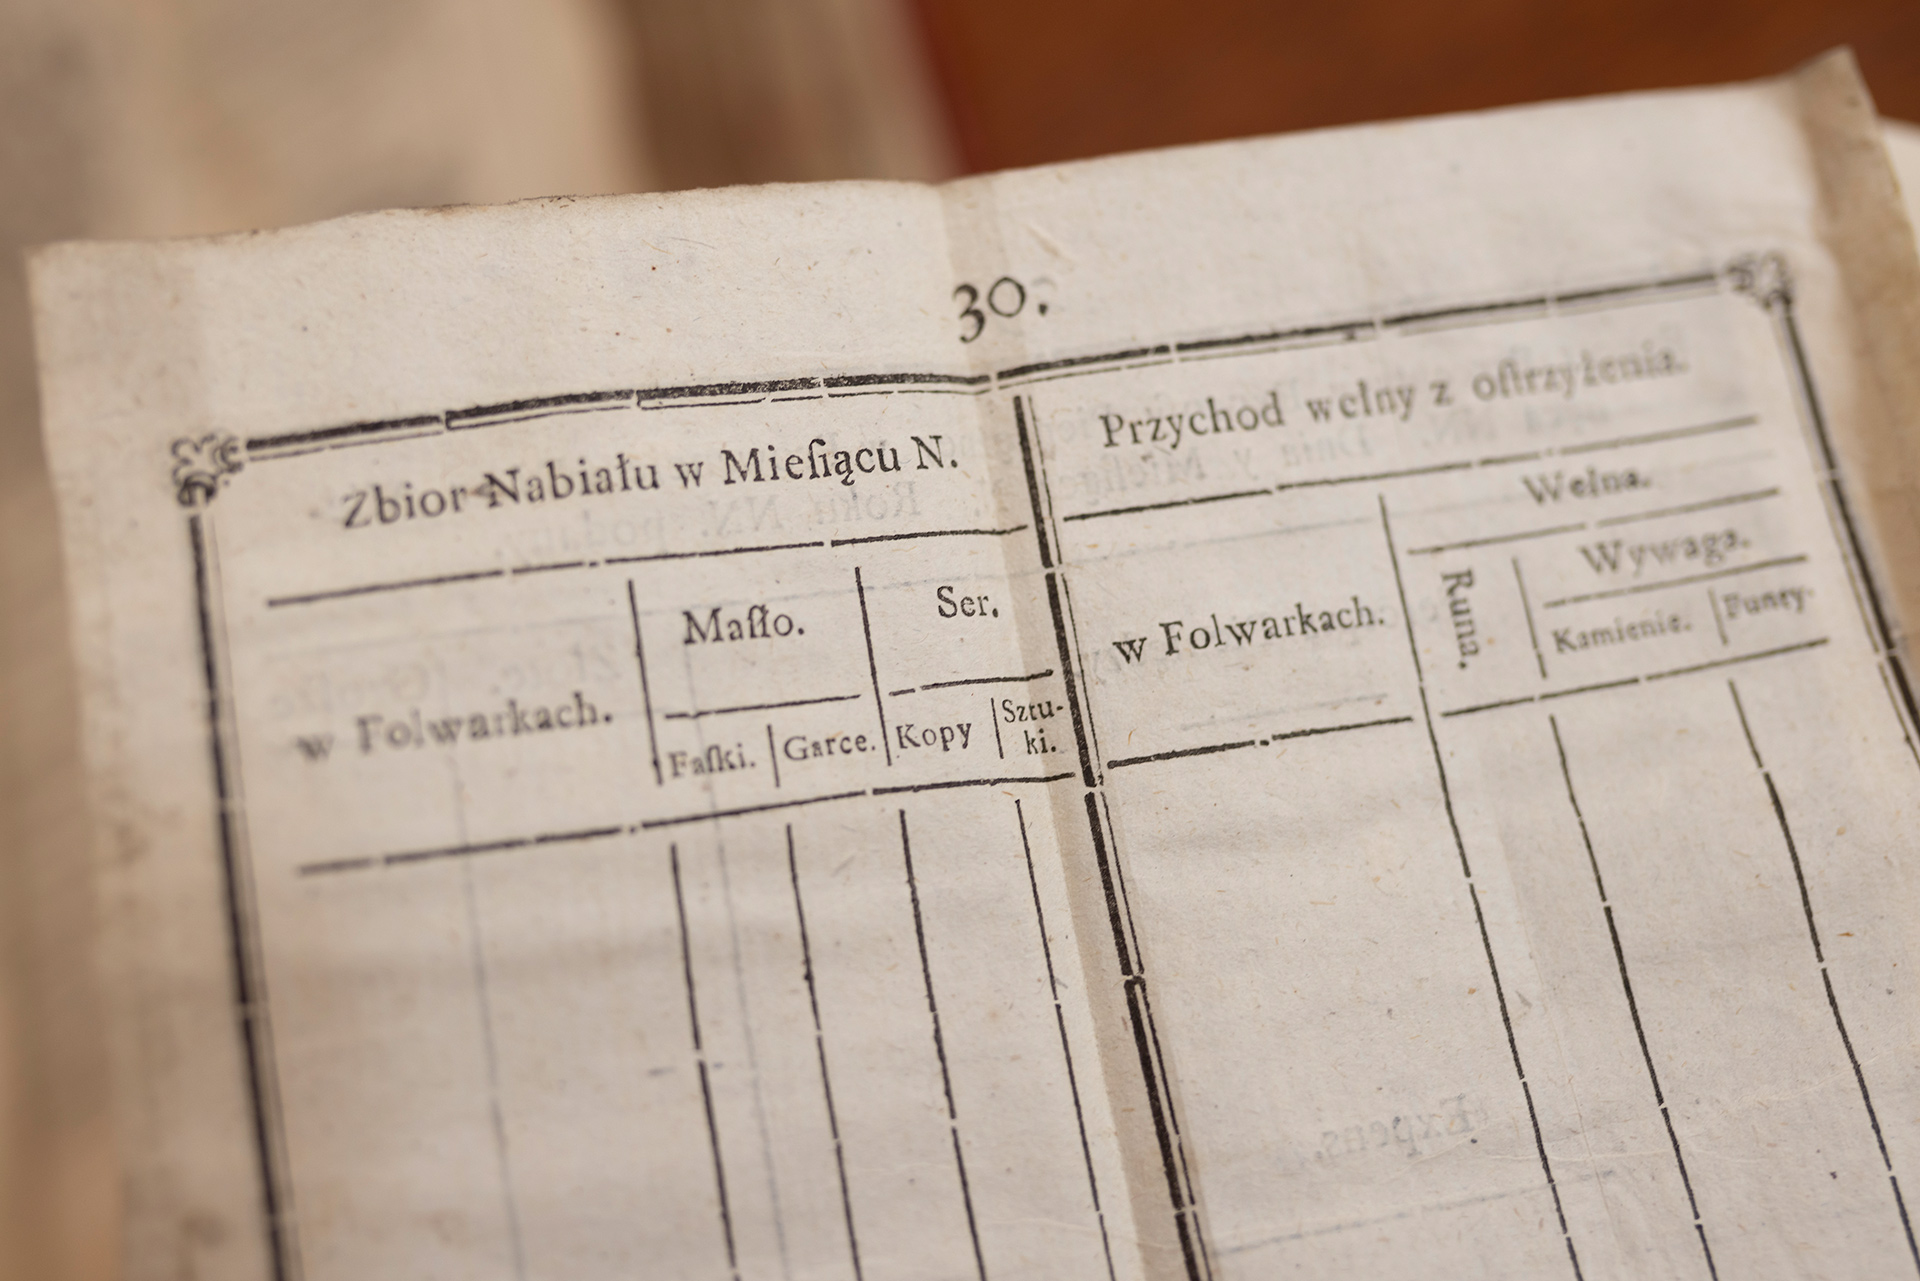 30.
Zbior Nabiału w Mieſiącu N.
w Folwarkach.
Maſło.
Ser.
Faſki.
Garce.
Kopy
Sztu-
ki.
Przychod wełny z oſtrzyżenia.
w Folwarkach.
Wełna.
Runa.
Wywaga.
Kamienie.
Funty.
Expens.